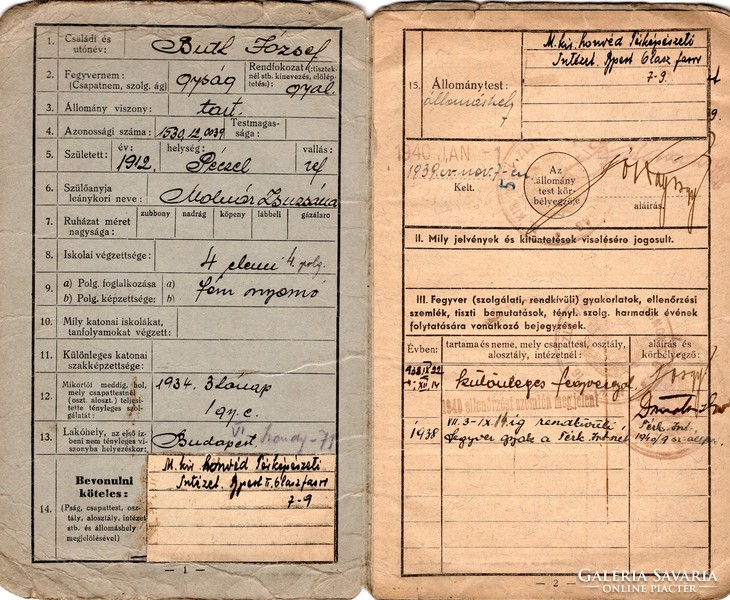 1. Családi és utónév: Buth József
2. Fegyvernem: (Csapatnem, szolg. ág) gyság Rendfokozat (tisztek-nél stb. kinevezés, előlép-tetése): gyal.
3. Állomány viszony: tart.
4. Azonossági száma: Testmagas-sága:
5. Született: év: 1912. helység: Péczel vallás: ref
6. Szülőanyja leánykori neve: Molnár Zsuzsánna
7. Ruházat méret nagysága: zubbony nadrág köpeny lábbeli gázálarc
8. Iskolai végzettsége: 4 elemi 4 polg.
9. a) Polg. foglalkozása a) fém nyomó
b) Polg. képzettsége: b)
10. Mily katonai iskolákat, tanfolyamokat végzett:
11. Különleges katonai szakképzettsége:
12. Mikortól meddig, hol, mely csapattestnél (oszt. aloszt.) teljesí-tette tényleges szol-gálatát: 1934. 3 hónap
1 gy. e.
13. Lakóhely, az első íz-beni nem tényleges vi-szonyba helyezéskor: Budapest VI
14. Bevonulni köteles:
(Pság, csapattest, osz-tály, alosztály, intézet stb. és állomáshely megjelölésével)
M. kir. honvéd Térképészeti
Intézet. Bpest II. Olasz fasor
7-9
— 1 —
M. kir. honvéd Térképészeti
Intézet. Bpest Olasz fasor
7-9.
15. Állománytest:
állomáshely
1940 JAN
1939. év nov. 7-én
Kelt.
Az állomány test kör-bélyegzője,
aláírás.
II. Mily jelvények és kitüntetések viselésére jogosult.
III. Fegyver (szolgálati, rendkívüli) gyakorlatok, ellenőrzési
szemlék, tiszti bemutatások, tényl. szolg. harmadik évének
folytatására vonatkozó bejegyzések.
Évben: tartama és neme, mely csapattest, osztály, alosztály, intézetnél: aláírás és körbélyegző:
938 IX 22
XII. 14 különleges fegyvergyak
1940 ellenőrzési szemlén megjelent
1938 VII. 3-IX. 14 ig rendkívüli
fegyver gyak a Térk. Int.nél
Térk. Int.
— 2 —
GALERIA SAVARIA
ONLINE PIACTÉR